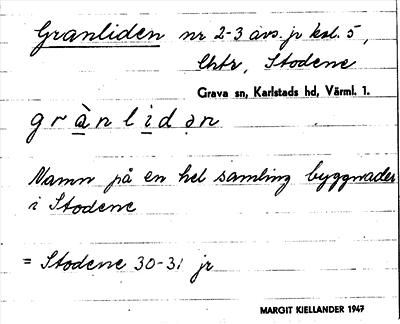 Granliden nr 2-3 avs. jr kal. 5,
Chtr, Stodene
Grava sn, Karlstads hd, Värml. 1.
grànlidən
Namn på en hel samling byggnader
i Stodene
= Stodene 30-31 jr
MARGIT KIELLANDER 1947